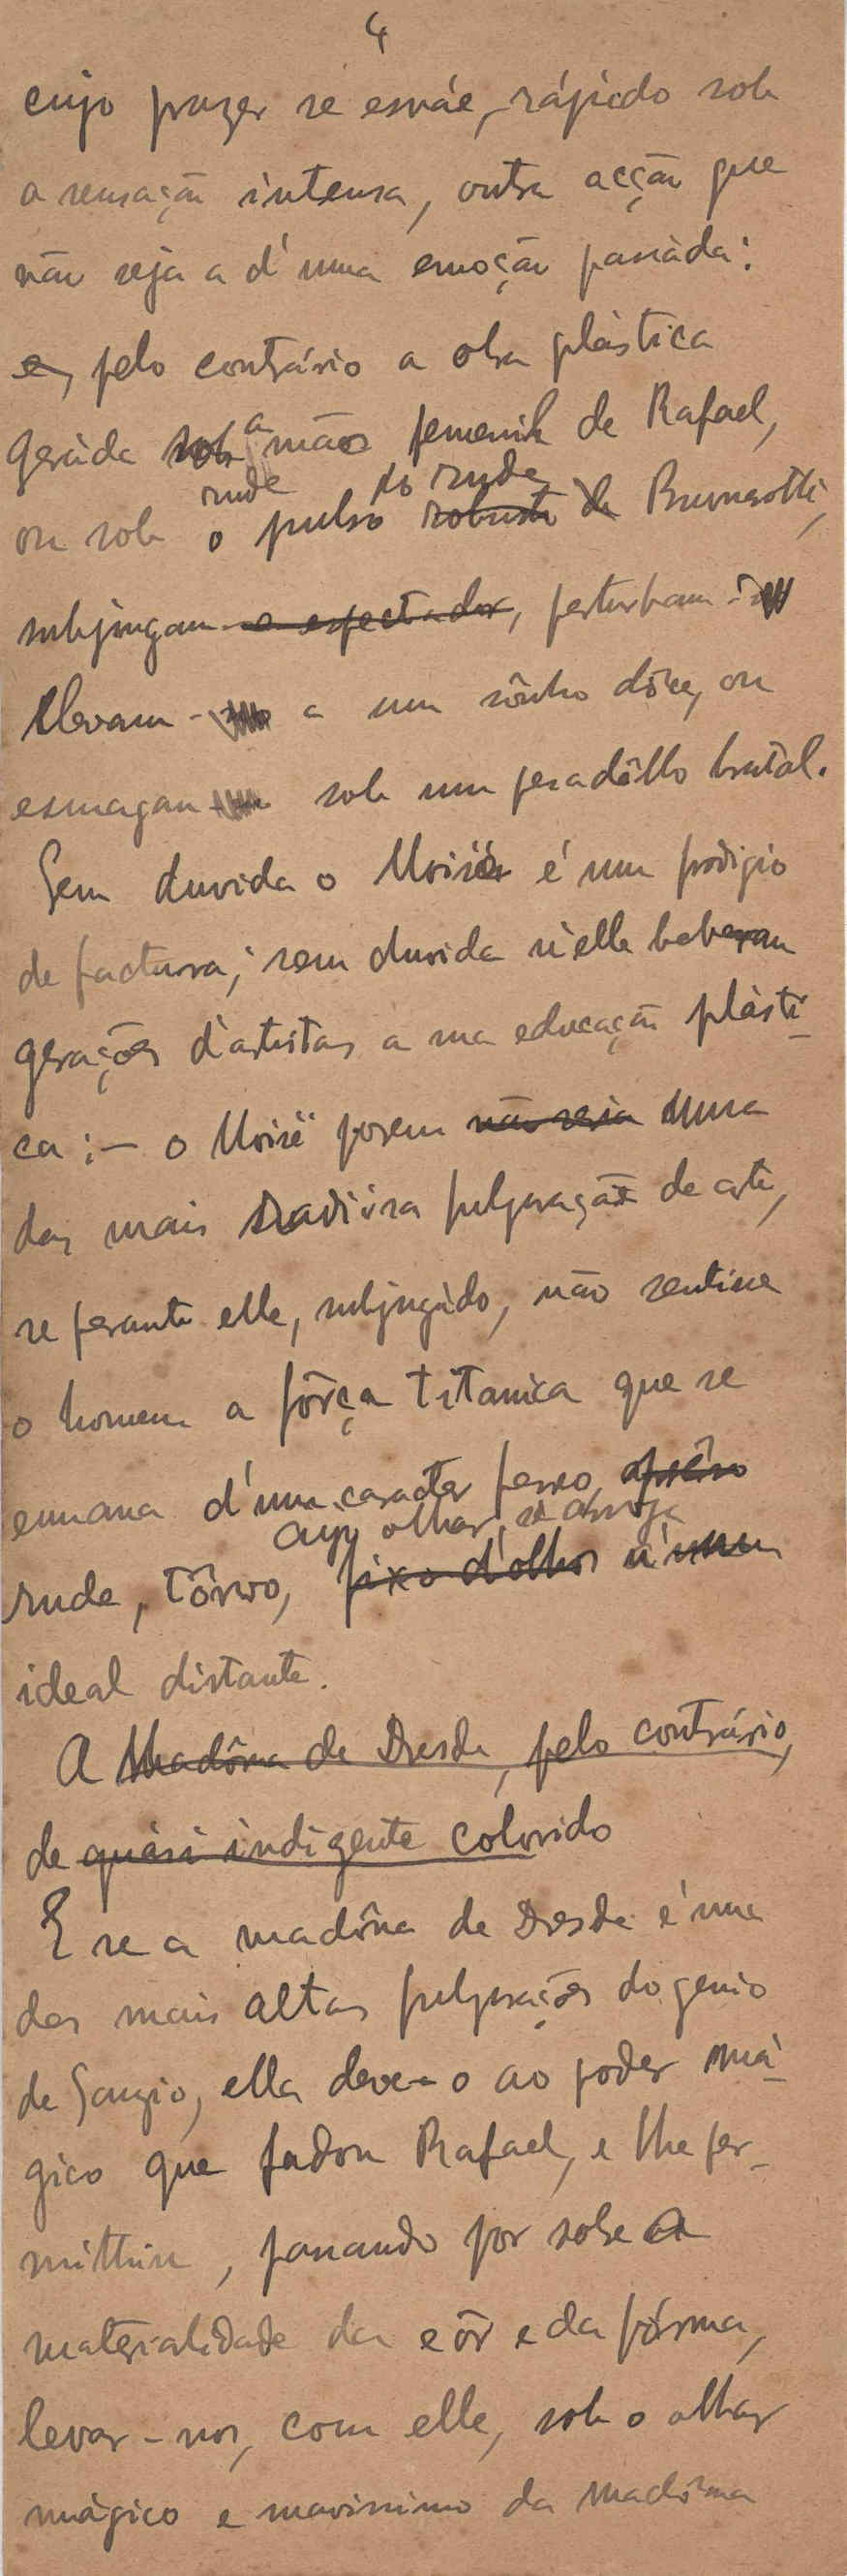 4
cujo prazer se esváe, rápido sob
a sensação intensa, outra acção que
não seja a d'uma emoção passàda:
e, pelo contrário a obra plàstica
geràda sob a mão femenil de Rafael,
rude do rude
ou sob o pulso robusto de Buonarotti,
subjugam o espectador, perturbam-
elevam- a um sônho dôce, ou
esmagam sob um pesadêllo brutàl.
Sem duvida o Moisés é um prodigio
de factura; sem duvida n'elle beberam
gerações d'artistas a sua educação plàsti-
ca :— o Moisé porem não seria uma
das mais fulguração de arte,
se perante elle, subjugàdo, não sentisse
o homem a fôrça titanica que se
emana d'um caracter ferreo,
cujo olhar, se arroja
rude, tôrvo, fixo d'olhos n'um
ideal distante.
A Madôna de Dresde, pelo contrário,
de quàsi indigente colorido
E se a madôna de Dresde é uma
das mais altas fulgurações do genio
de Sanzio, ella deve-o ao poder má-
gico que fadou Rafael, e lhe per-
mittiu, passando por sobre a
materialidade da côr e da fórma,
levar-nos, com elle, sob o olhar
mágico e mavissimo da madôna